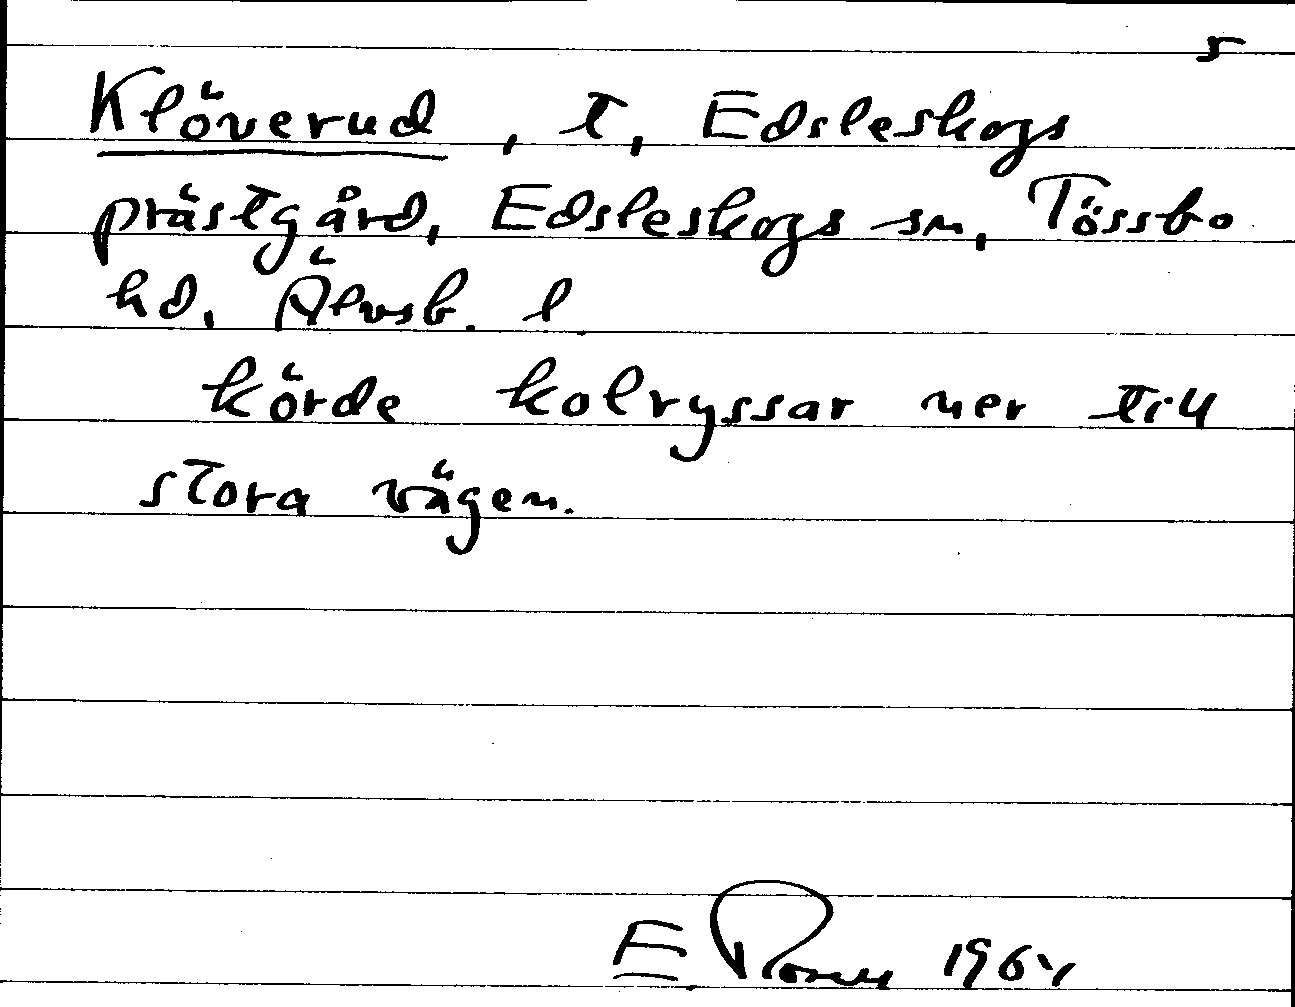 5
Klöverud, t, Edsleskogs
prästgård, Edsleskogs sn, Tössbo
hd. Älvsb. l
körde kolryssar ner till
stora vägen.
E 1964